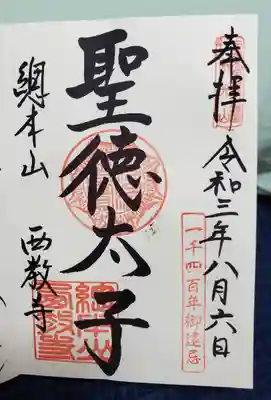 奉拝 令和三年八月六日
一千四百年御遠忌
聖徳太子
總本山 西教寺